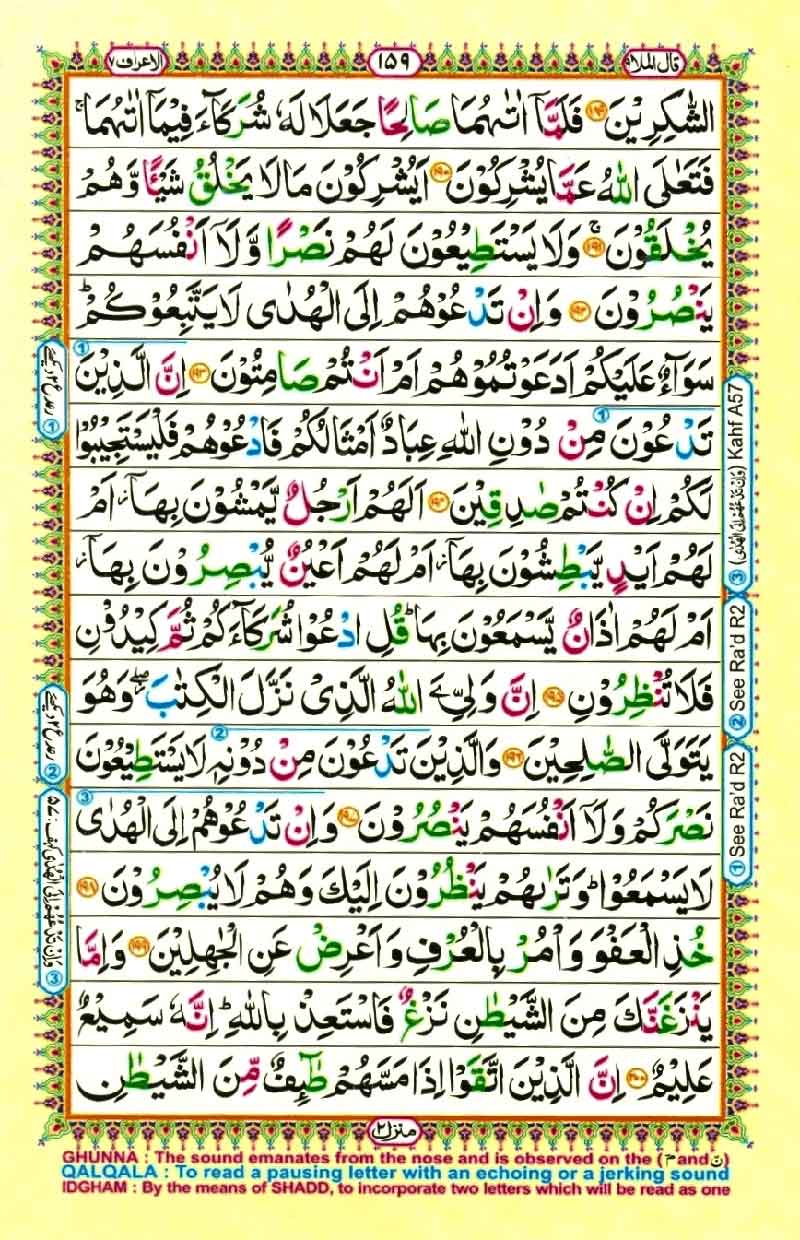 قال الملا ۹
۱۵۹
الاعراف ۷
الشّٰكِرِيْنَ ۱۸۹ فَلَمَّاۤ اٰتٰىهُمَا صَالِحًا جَعَلَا لَهٗ شُرَكَآءَ فِيْمَاۤ اٰتٰىهُمَا ۚ
فَتَعٰلَى اللّٰهُ عَمَّا يُشْرِكُوْنَ ۱۹۰ اَيُشْرِكُوْنَ مَا لَا يَخْلُقُ شَيْـًٔا وَّهُمْ
يُخْلَقُوْنَ ۱۹۱ ۚ وَلَا يَسْتَطِيْعُوْنَ لَهُمْ نَصْرًا وَّلَاۤ اَنْفُسَهُمْ
يَنْصُرُوْنَ ۱۹۲ وَاِنْ تَدْعُوْهُمْ اِلَى الْهُدٰى لَا يَتَّبِعُوْكُمْ ؕ
سَوَآءٌ عَلَيْكُمْ اَدَعَوْتُمُوْهُمْ اَمْ اَنْتُمْ صَامِتُوْنَ ۱۹۳ اِنَّ الَّذِيْنَ
تَدْعُوْنَ مِنْ دُوْنِ اللّٰهِ عِبَادٌ اَمْثَالُكُمْ فَادْعُوْهُمْ فَلْيَسْتَجِيْبُوْا
لَكُمْ اِنْ كُنْتُمْ صٰدِقِيْنَ ۱۹۴ اَلَهُمْ اَرْجُلٌ يَّمْشُوْنَ بِهَاۤ ز اَمْ
لَهُمْ اَيْدٍ يَّبْطِشُوْنَ بِهَاۤ ز اَمْ لَهُمْ اَعْيُنٌ يُّبْصِرُوْنَ بِهَاۤ ز
اَمْ لَهُمْ اٰذَانٌ يَّسْمَعُوْنَ بِهَا ؕ قُلِ ادْعُوْا شُرَكَآءَكُمْ ثُمَّ كِيْدُوْنِ
فَلَا تُنْظِرُوْنِ ۱۹۵ اِنَّ وَلِيِّۦَ اللّٰهُ الَّذِيْ نَزَّلَ الْكِتٰبَ ۖ وَهُوَ
يَتَوَلَّى الصّٰلِحِيْنَ ۱۹۶ وَالَّذِيْنَ تَدْعُوْنَ مِنْ دُوْنِهٖ لَا يَسْتَطِيْعُوْنَ
نَصْرَكُمْ وَلَاۤ اَنْفُسَهُمْ يَنْصُرُوْنَ ۱۹۷ وَاِنْ تَدْعُوْهُمْ اِلَى الْهُدٰى
لَا يَسْمَعُوْا ؕ وَتَرٰىهُمْ يَنْظُرُوْنَ اِلَيْكَ وَهُمْ لَا يُبْصِرُوْنَ ۱۹۸
خُذِ الْعَفْوَ وَاْمُرْ بِالْعُرْفِ وَاَعْرِضْ عَنِ الْجٰهِلِيْنَ ۱۹۹ وَاِمَّا
يَنْزَغَنَّكَ مِنَ الشَّيْطٰنِ نَزْغٌ فَاسْتَعِذْ بِاللّٰهِ ؕ اِنَّهٗ سَمِيْعٌ
عَلِيْمٌ ۲۰۰ اِنَّ الَّذِيْنَ اتَّقَوْا اِذَا مَسَّهُمْ طٰٓئِفٌ مِّنَ الشَّيْطٰنِ
① رعد ع ۲ دیکھئے
② رعد ع ۲ دیکھئے
③ وَاِنْ تَدْعُهُمْ اِلَى الْهُدٰى کہف : ۵۷
① See Ra'd R2
② See Ra'd R2
③ (وَاِنْ تَدْعُهُمْ اِلَى الْهُدٰى) Kahf A57
منزل ۲
GHUNNA : The sound emanates from the nose and is observed on the (مّ and نّ)
QALQALA : To read a pausing letter with an echoing or a jerking sound
IDGHAM : By the means of SHADD, to incorporate two letters which will be read as one